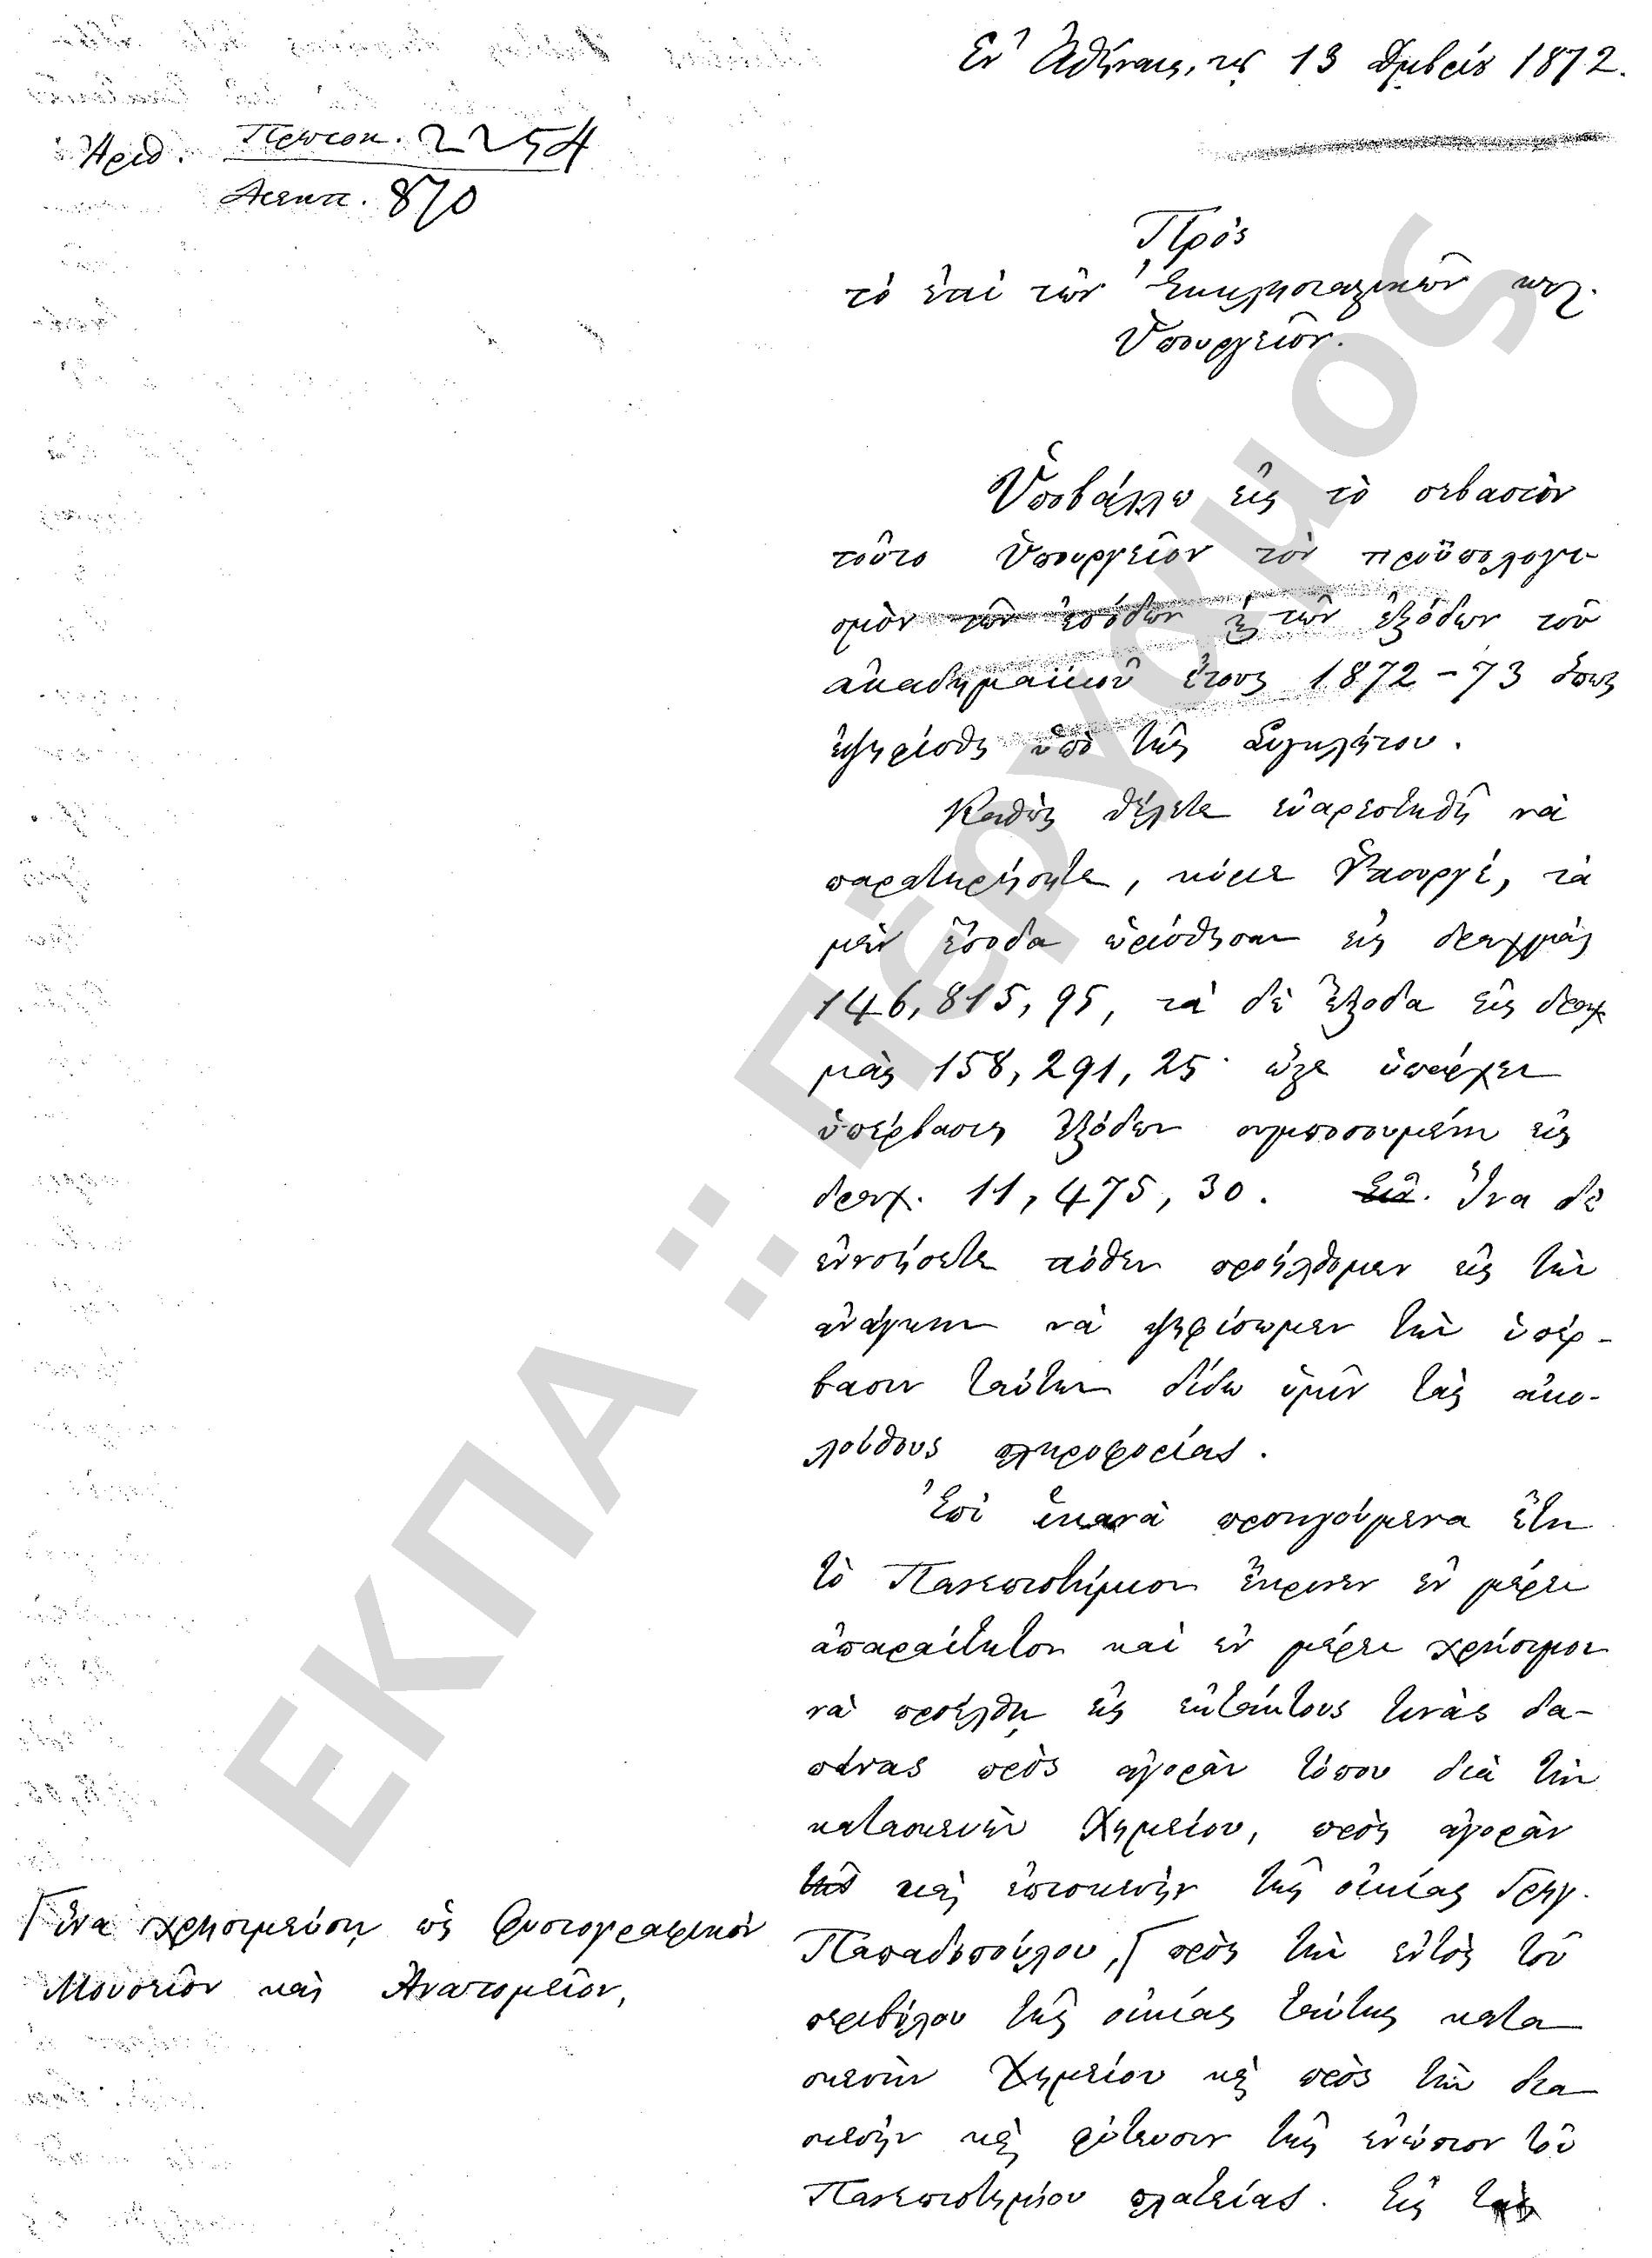 Ἐν Ἀθήναις, τῇ 13 Δμβρίου 1872.
Ἀριθ. Πρωτοκ. 2254
Διεκπ. 870
Πρὸς
τὸ ἐπὶ τῶν Ἐκκλησιαστικῶν κτλ.
Ὑπουργεῖον.
Ὑποβάλλω εἰς τὸ σεβαστὸν
τοῦτο Ὑπουργεῖον τὸν προϋπολογι-
σμὸν τῶν ἐσόδων καὶ τῶν ἐξόδων τοῦ
ἀκαδημαϊκοῦ ἔτους 1872-73 ὅπως
ἐψηφίσθη ὑπὸ τῆς Συγκλήτου.
Καθὼς θέλετε εὐαρεστηθῆ νὰ
παρατηρήσητε, κύριε Ὑπουργέ, τὰ
μὲν ἔσοδα ὡρίσθησαν εἰς δραχμὰς
146,815,95, τὰ δὲ ἔξοδα εἰς δραχ
μὰς 158,291,25· ὥστε ὑπάρχει
ὑπέρβασις ἐξόδων συμποσουμένη εἰς
δραχ. 11,475,30. Ἵνα δὲ
ἐννοήσετε πόθεν προήλθομεν εἰς τὴν
ἀνάγκην νὰ ψηφίσωμεν τὴν ὑπέρ-
βασιν ταύτην δίδω ὑμῖν τὰς ἀκο-
λούθους πληροφορίας.
Ἐπὶ ἱκανὰ προηγούμενα ἔτη
τὸ Πανεπιστήμιον ἔκρινεν ἐν μέρει
ἀπαραίτητον καὶ ἐν μέρει χρήσιμον
νὰ προέλθῃ εἰς ἐκτάκτους τινὰς δα-
πάνας πρὸς ἀγορὰν τόπου διὰ τὴν
κατασκευὴν Χημείου, πρὸς ἀγορὰν
τῆς καὶ ἐπισκευὴν τῆς οἰκίας Γρηγ.
Παπαδοπούλου,⌈ πρὸς τὴν ἐντὸς τοῦ
περιβόλου τῆς οἰκίας ταύτης κατα
σκευὴν Χημείου καὶ πρὸς τὴν δια
σκευὴν καὶ φύτευσιν τῆς ἐνώπιον τοῦ
Πανεπιστημίου πλατείας. Εἰς τὰς
⌈ἵνα χρησιμεύσῃ ὡς Φυσιογραφικὸν
Μουσεῖον καὶ Ἀνατομεῖον,
ΕΚΠΑ :: Πέργαμος